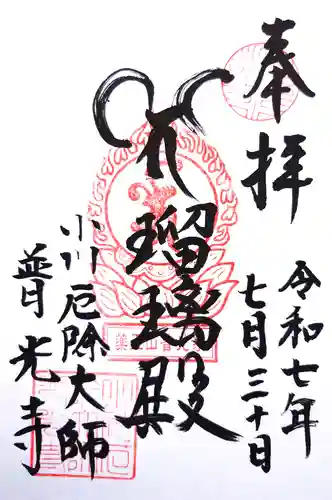 奉拝
令和七年
七月三十日
瑠璃殿
小川厄除大師
普光寺